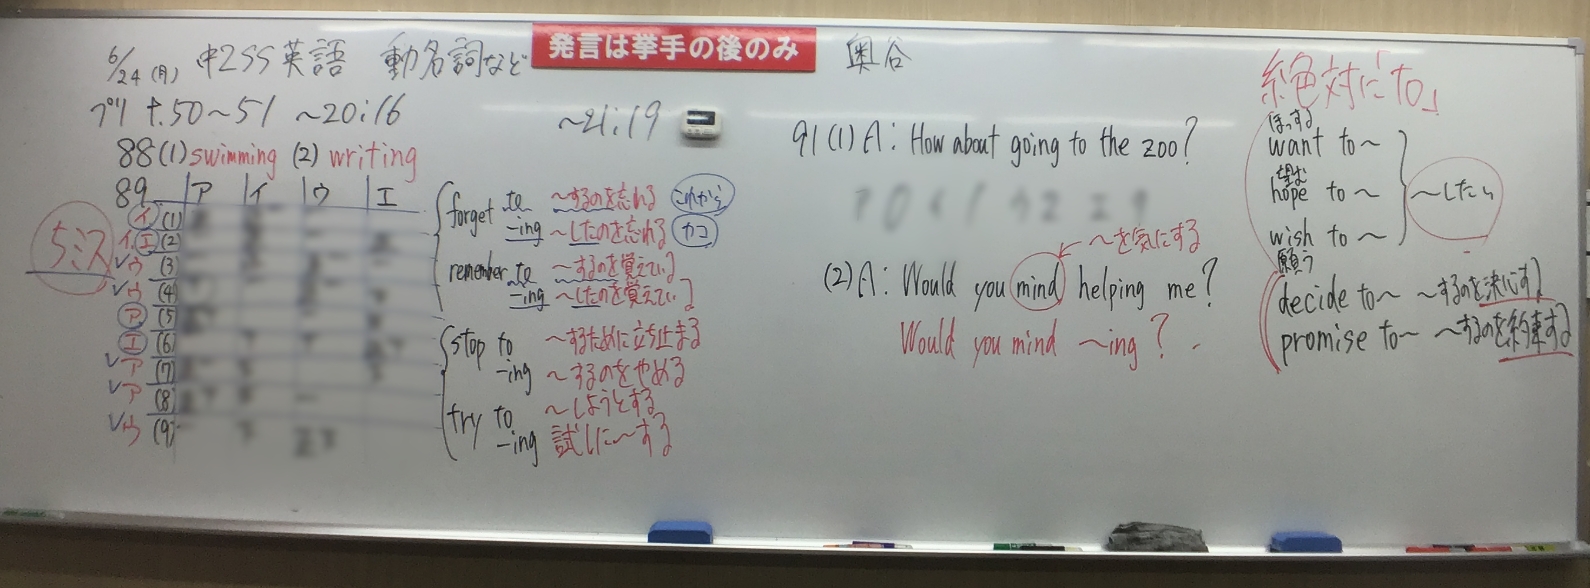 発言は挙手の後のみ
6/24(月) 中2SS英語 動名詞など 奥谷
プリ t.50~51 ~20:16 ~21:19
88(1) swimming (2) writing
89 ア イ ウ エ
5ミス
イ (1)
イ、エ (2)
ウ (3)
ウ (4)
ア (5)
エ (6)
ア (7)
ア (8)
ウ (9)
forget to ~するのを忘れる これから
-ing ~したのを忘れる カコ
remember to ~するのを覚えている
-ing ~したのを覚えている
stop to ~するために立ち止まる
-ing ~するのをやめる
try to ~しようとする
-ing 試しに~する
91(1) A: How about going to the zoo?
~を気にする
(2) A: Would you mind helping me?
Would you mind ~ing?
絶対に「to」
ほっする
want to~
望む
hope to~ ~したい
wish to~
願う
decide to~ ~するのを決心する
promise to~ ~するのを約束する